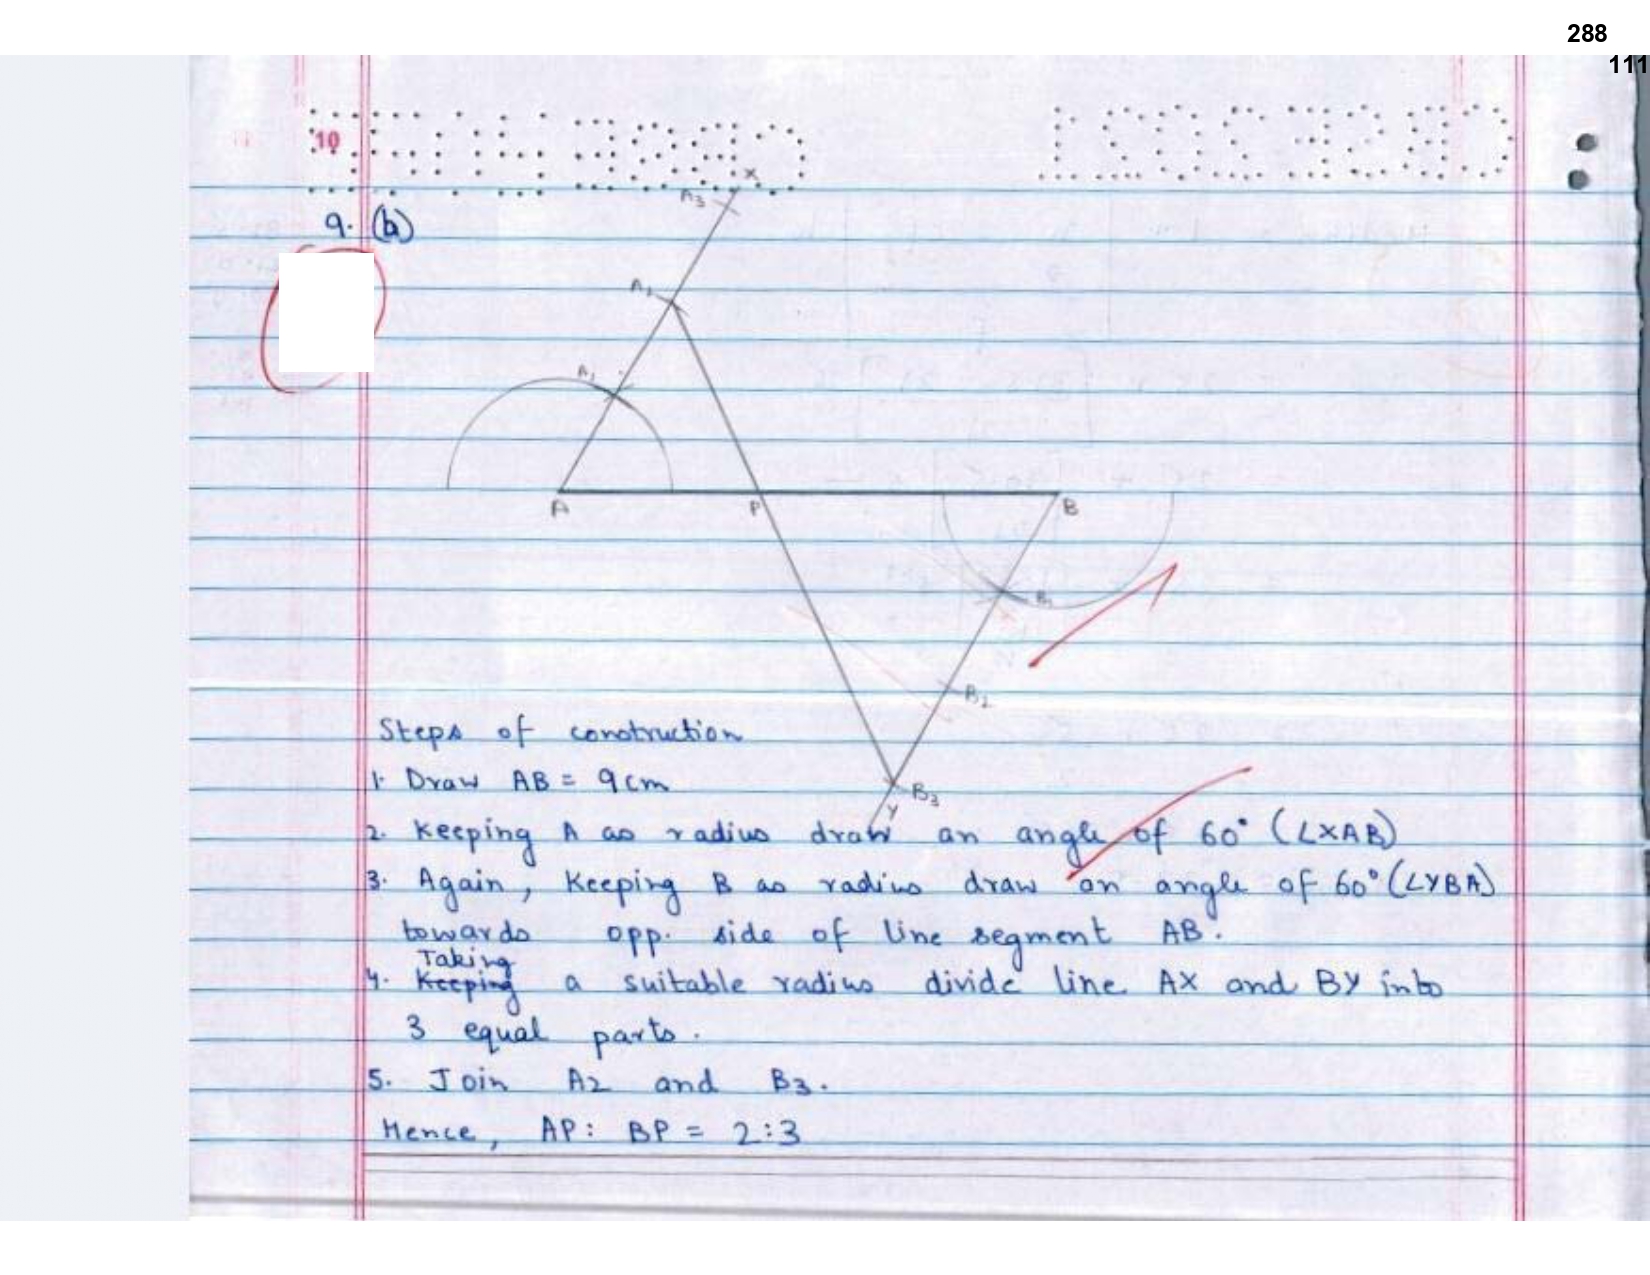 288
111
10
X
A3
9. (b)
A2
A1
A
P
B
B1
B2
Steps of construction
1. Draw AB = 9cm
B3
Y
2. Keeping A as radius draw an angle of 60° (∠XAB)
3. Again, Keeping B as radius draw an angle of 60° (∠YBA)
towards opp. side of line segment AB.
Taking
4. Keeping a suitable radius divide line AX and BY into
3 equal parts.
5. Join A2 and B3.
Hence, AP: BP = 2:3